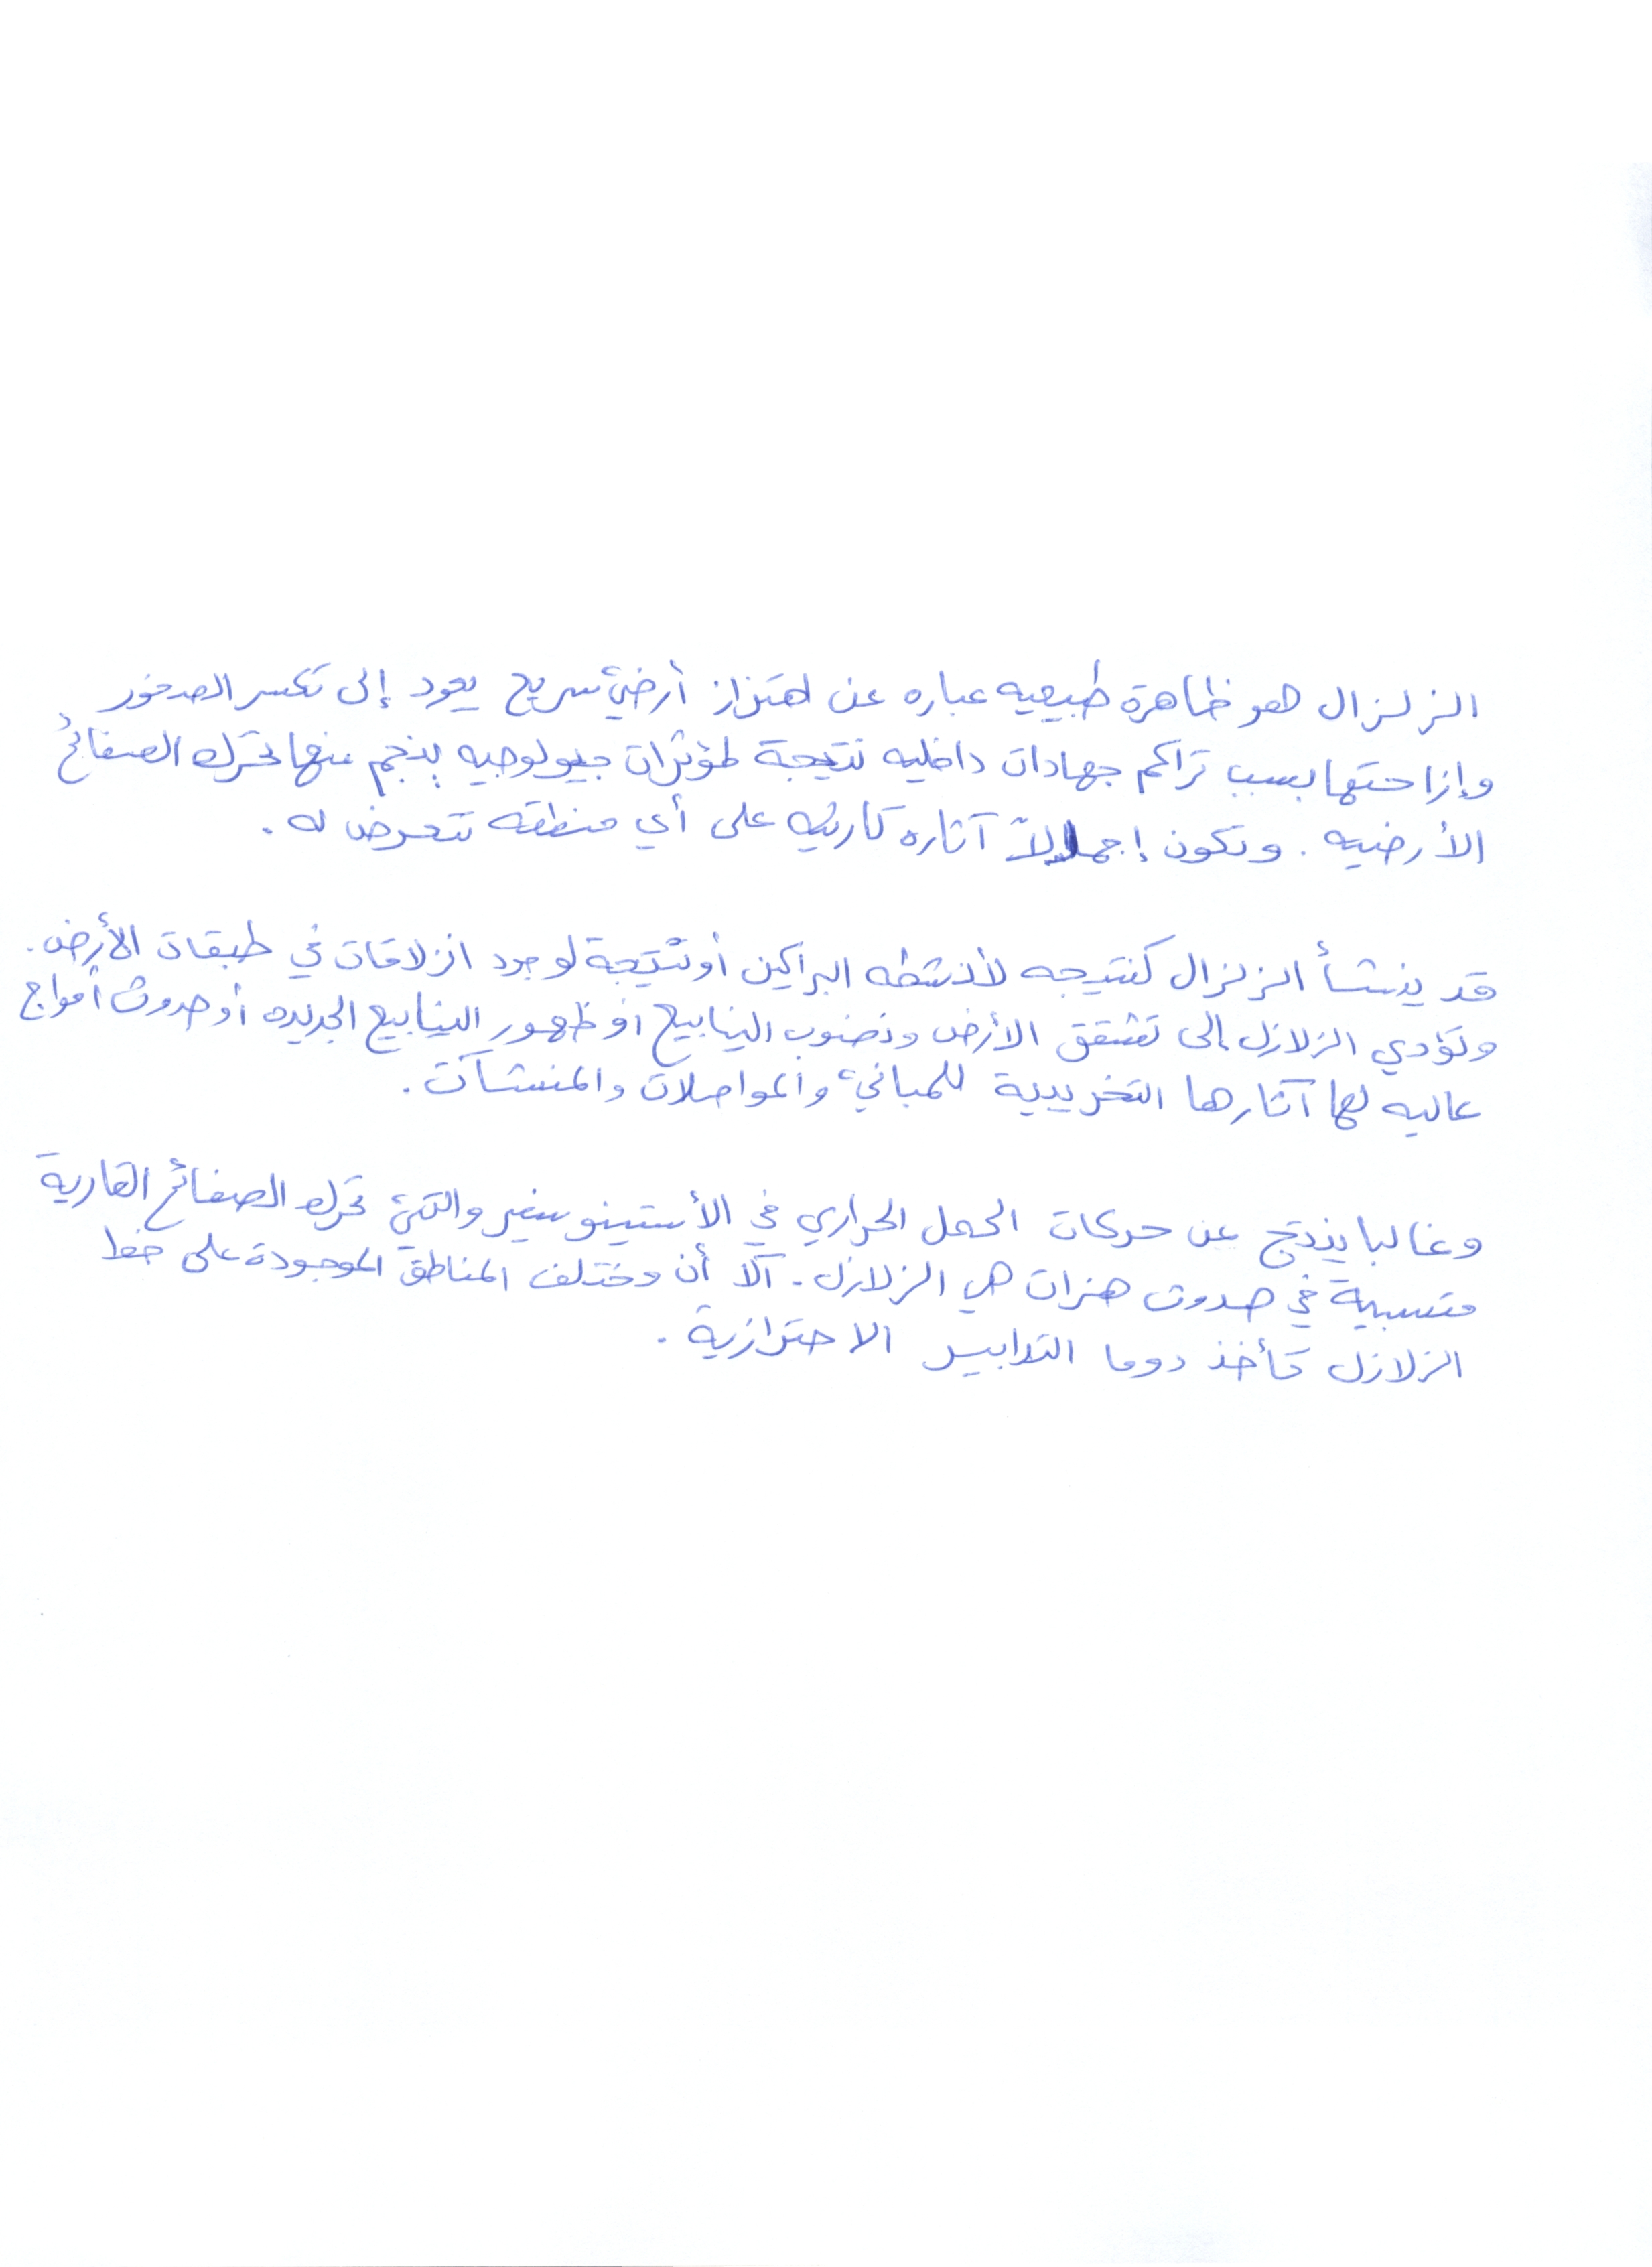 الزلزال هو ظاهرة طبيعيه عباره عن اهتزاز أرضيء سريع يعود إلى تكسر الصخور
وإزاحتها بسبب تراكم جهادات داخليه نتيجة لمؤثرات جيولوجيه ينجم عنها تحرك الصفائح
الأرضيه . وتكون إجمالاً آثاره كارثيه على أي منطقه تتعرض له .
قد ينشأ الزلزال كنتيجه لأنشطه البراكين أو نتيجة لوجود انزلاقات في طبقات الأرض .
وتؤدي الزلازل إلى تشقق الأرض ونضوب الينابيع أو ظهور الينابيع الجديده أو حدوث أمواج
عاليه لها آثارها التخريبية للمبانيء والمواصلات والمنشآت .
وغالبا ينتج عن حركات الحمل الحراري في الأستينوسفير والتيء تحرك الصفائح القارية
متسببة في حدوث هزات هي الزلازل . آلا أن وختلف المناطق الموجودة على خط
الزلازل تأخذ دوما التدابير الاحترازية .